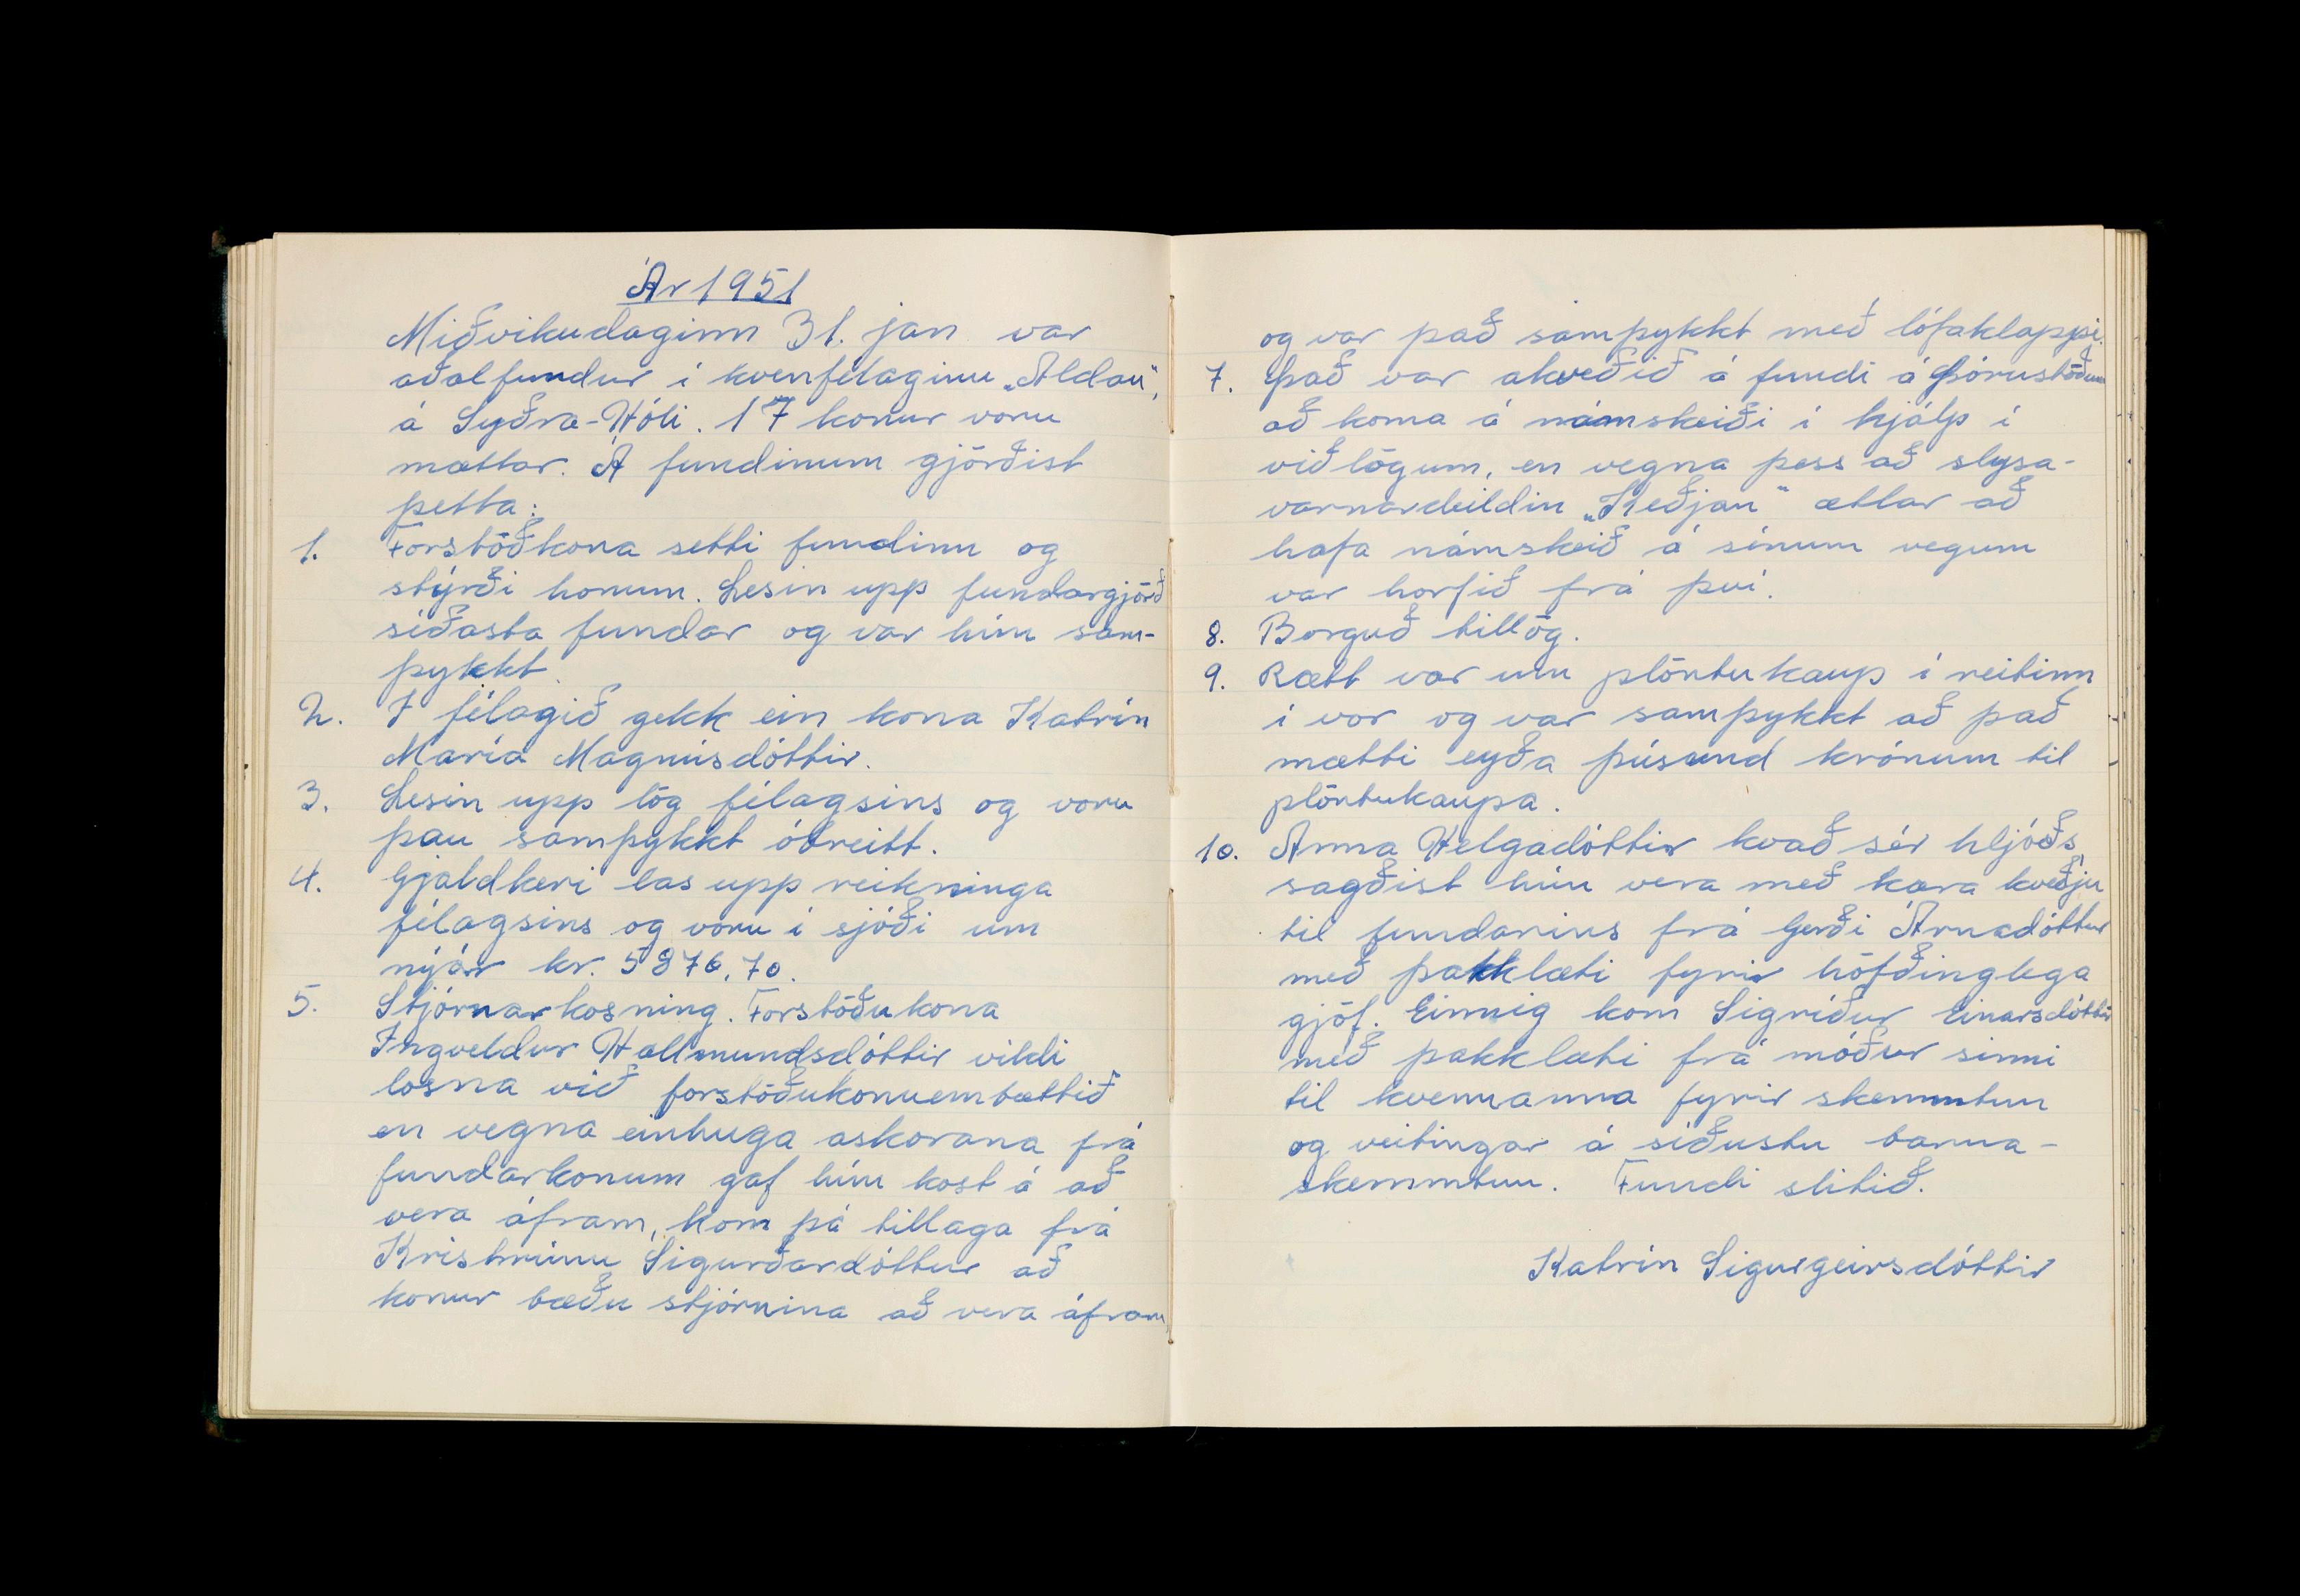 Ár 1951
Miðvikudaginn 31. jan var
aðalfundur í kvenfélaginu „Aldan",
á Syðra-Hóli. 17 konur voru
mættar. Á fundinum gjörðist
þetta:
1. Forstöðkona setti fundinn og
stýrði honum. Lesin upp fundargjörð
síðasta fundar og var hún sam-
þykkt.
2. Í félagið gekk ein kona Katrín
María Magnúsdóttir.
3. Lesin upp lög félagsins og voru
þau samþykkt óbreitt.
4. Gjaldkeri las upp reikninga
félagsins og voru í sjóði um
nýár kr. 5876,70.
5. Stjórnarkosning. Forstöðukona
Ingveldur Hallmundsdóttir vildi
losna við forstöðukonuembættið
en vegna einhuga askorana frá
fundarkonum gaf hún kost á að
vera áfram, kom þá tillaga frá
Kristrúnu Sigurðardóttur að
konur bæðu stjórnina að vera áfram
og var það samþykkt með lófaklappi.
7. Það var akveðið á fundi á Þórustöðum
að koma á námskeiði í hjálp í
viðlögum, en vegna þess að slysa-
varnardeildin „Keðjan" ætlar að
hafa námskeið á sínum vegum
var horfið frá því.
8. Borguð tillög.
9. Rætt var um plöntukaup í reitinn
í vor og var samþykkt að það
mætti eyða þúsund krónum til
plöntukaupa.
10. Anna Helgadóttir kvað sér hljóðs,
sagðist hún vera með kæra kveðju
til fundarins frá Gerði Árnadóttur
með þakklæti fyrir höfðinglega
gjöf. Einnig kom Sigríður Einarsdóttir
með þakklæti frá móður sinni
til kvennanna fyrir skemmtun
og veitingar á síðustu barna-
skemmtun. Fundi slitið.
Katrín Sigurgeirsdóttir